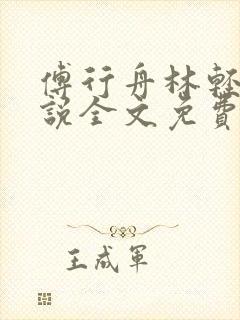 傅行舟林輕
説全文免費
王成軍